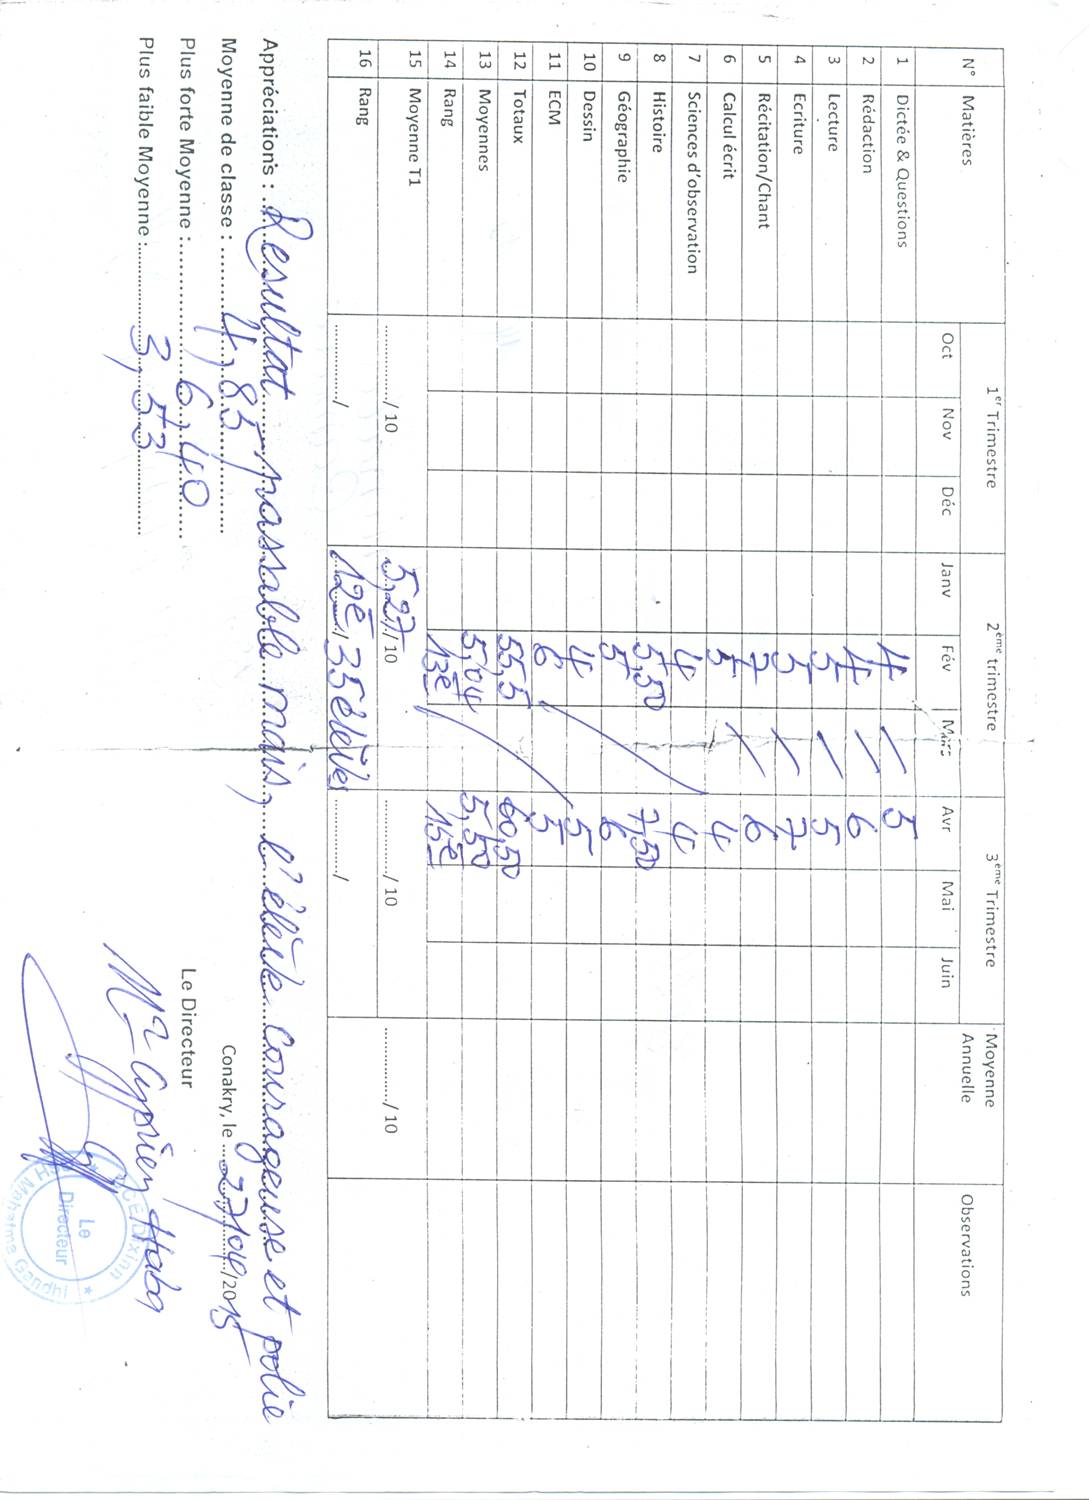 N° Matières 1er Trimestre 2ème trimestre 3ème Trimestre Moyenne Annuelle Observations
Oct Nov Déc Janv Fév Mars Avr Mai Juin
1 Dictée & Questions 4 / 5
2 Rédaction 4 / 6
3 Lecture 5 / 5
4 Ecriture 5 / 7
5 Récitation/Chant 7 / 6
6 Calcul écrit 5 4
7 Sciences d'observation 4 4
8 Histoire 5,50 7,50
9 Géographie 5 6
10 Dessin 4 5
11 ECM 6 5
12 Totaux 55,5 60,50
13 Moyennes 5,04 5,50
14 Rang 13e 15e
15 Moyenne T1 ............/ 10 5,27/ 10 ............/ 10 ............/ 10
16 Rang ............/ 12e / 35 élèves ............/
Appréciations : Resultat passable mais, l'élève courageuse et polie
Moyenne de classe : 4,85
Plus forte Moyenne : 6,40
Plus faible Moyenne : 3,53
Conakry, le 27/04/2015
Le Directeur
Mr Cyprien Haba
DCE/Dixinn
Le Directeur
Mahatma Gandhi